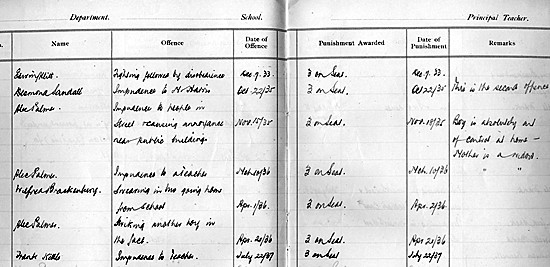 Department. School. Principal Teacher.
Name Offence Date of Offence Punishment Awarded Date of Punishment Remarks
Fighting followed by disobedience Dec. 7. 33. 3 on Seat. Dec. 7. 33.
Desmond Randall Impudence to Mr Oct 22/35 3 on Seat. Oct 22/35 This is the second offence
Alec Palmer. Impudence to people in
Street causing annoyance Nov. 15/35 3 on Seat. Nov. 18/35 Boy is absolutely out
near public building. of control at home -
Mother is a widow.
Alec Palmer. Impudence to a teacher Mch. 10/36 3 on Seat. Mch. 10/36 " "
Wilfred Brackenbury. Swearing in bus going home
from School Apr. 1/36. 2 on Seat. Apr. 2/36
Alec Palmer. Striking another boy in
the face. Apr. 21/36 3 on Seat. Apr. 21/36
Frank Impudence to Teacher. July 22/37 3 on Seat July 22/37